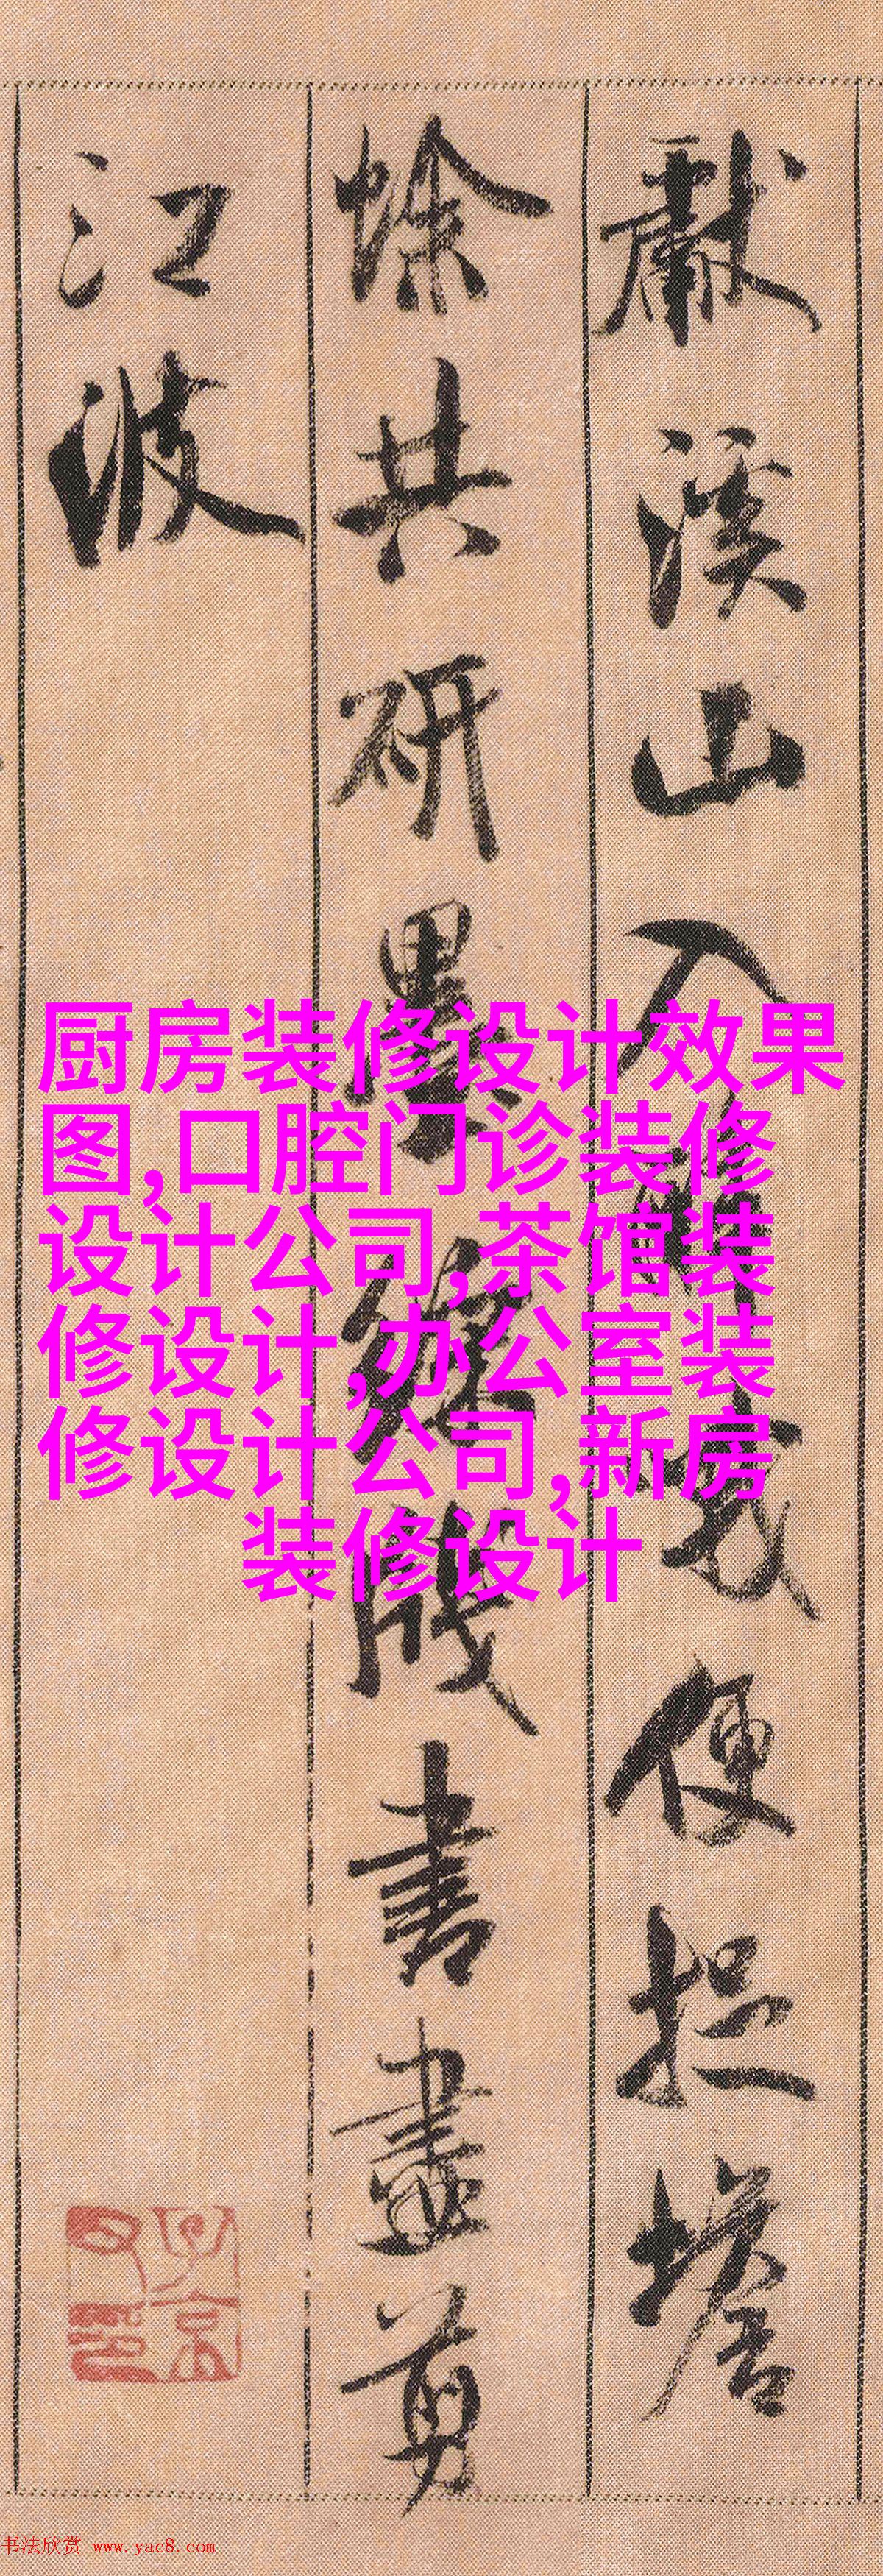 獻溪山入醉哦便捉蟾
蜍共研墨綵牋書盡剪
江波
厨房装修设计效果
图,口腔门诊装修
设计公司,茶馆装
修设计,办公室装
修设计公司,新房
装修设计
书法欣赏 www.yac8.com